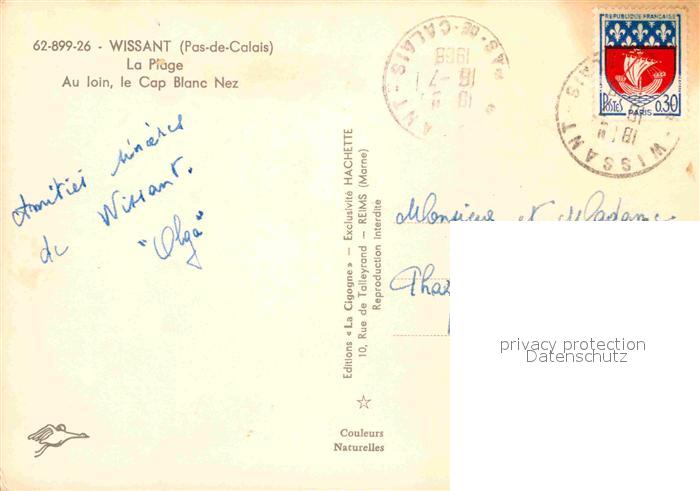 62-899-26 - WISSANT (Pas-de-Calais)
La Plage
Au loin, le Cap Blanc Nez
Amitiés sincères
de Wissant.
"Olga"
Editions « La Cigogne » — Exclusivité HACHETTE
10, Rue de Talleyrand — REIMS (Marne)
Reproduction Interdite
Couleurs
Naturelles
PAS-DE-CALAIS
18 -7
1968
REPUBLIQUE FRANÇAISE
POSTES
0,30
PARIS
WISSANT
Monsieur et Madame
privacy protection
Datenschutz